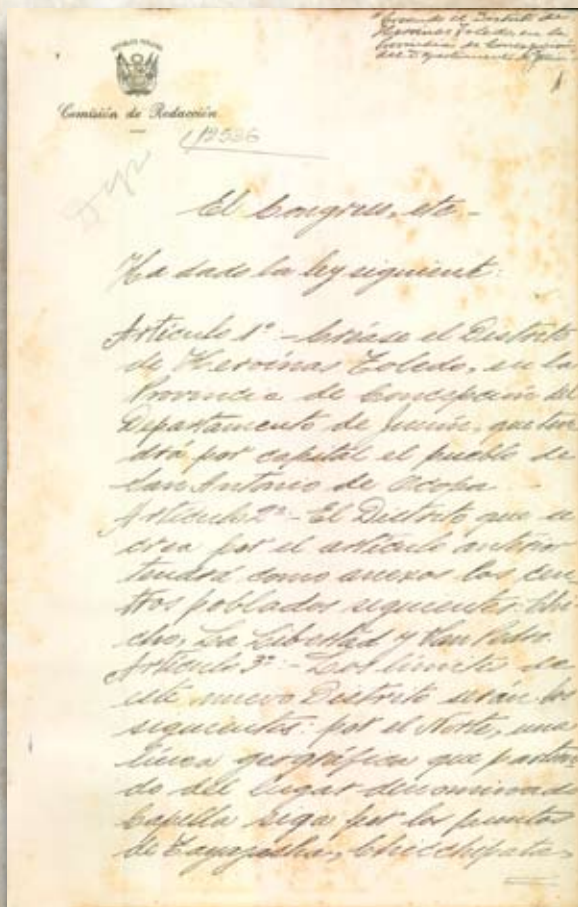 Creando el Distrito de
Heroínas Toledo, en la
Provincia de Concepción
del Departamento de Junín
REPÚBLICA PERUANA
Comisión de Redacción
12536
El Congreso, etc.-
Ha dado la ley siguient:
Artículo 1º:- Créase el Distrito
de Heroínas Toledo, en la
Provincia de Concepción del
Departamento de Junín, que ten
drá por capital el pueblo de
San Antonio de Ocopa
Artículo 2º:- El Distrito que se
crea por el artículo anterior
tendrá como anexos los cen
tros poblados siguientes:
La Libertad y San Pedro.
Artículo 3º:- Los límites de
este nuevo Distrito serán los
siguientes: por el Norte, una
línea geográfica que partien
do del lugar denominado
Capella siga por los puntos
de